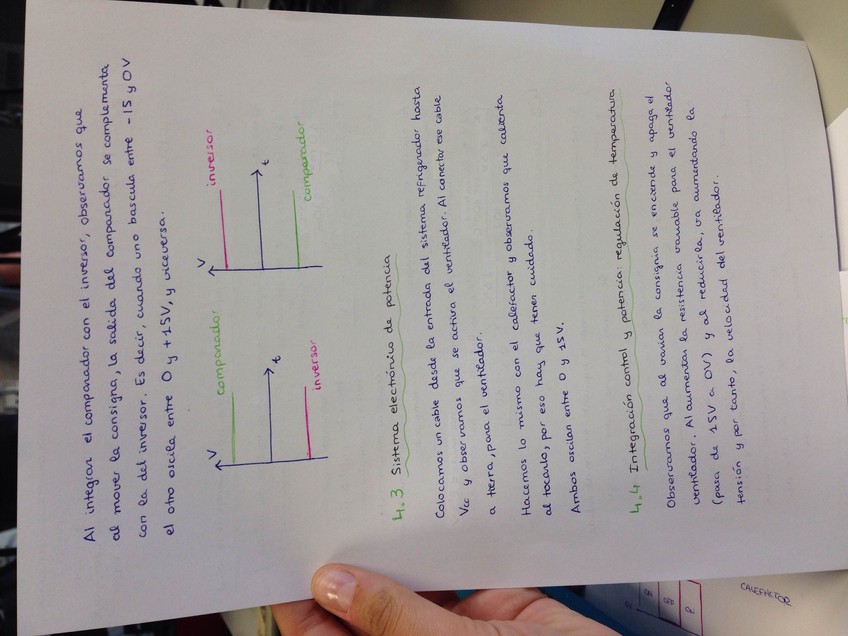 Al integrar el comparador con el inversor, observamos que
al mover la consigna, la salida del comparador se complementa
con la del inversor. Es decir, cuando uno bascula entre -15 y 0V
el otro oscila entre 0 y +15V, y viceversa.
V
comparador
t
inversor
V
inversor
t
comparador
4.3 Sistema electrónico de potencia
Colocamos un cable desde la entrada del sistema refrigerador hasta
Vcc y observamos que se activa el ventilador. Al conectar ese cable
a tierra, para el ventilador.
Hacemos lo mismo con el calefactor y observamos que calienta
al tocarlo, por eso hay que tener cuidado.
Ambos oscilan entre 0 y 15V.
4.4 Integración control y potencia: regulación de temperatura
Observamos que al variar la consigna se enciende y apaga el
ventilador. Al aumentar la resistencia variable para el ventilador
(pasa de 15V a 0V) y al reducirla, va aumentando la
tensión y por tanto, la velocidad del ventilador.
CALEFACTOR